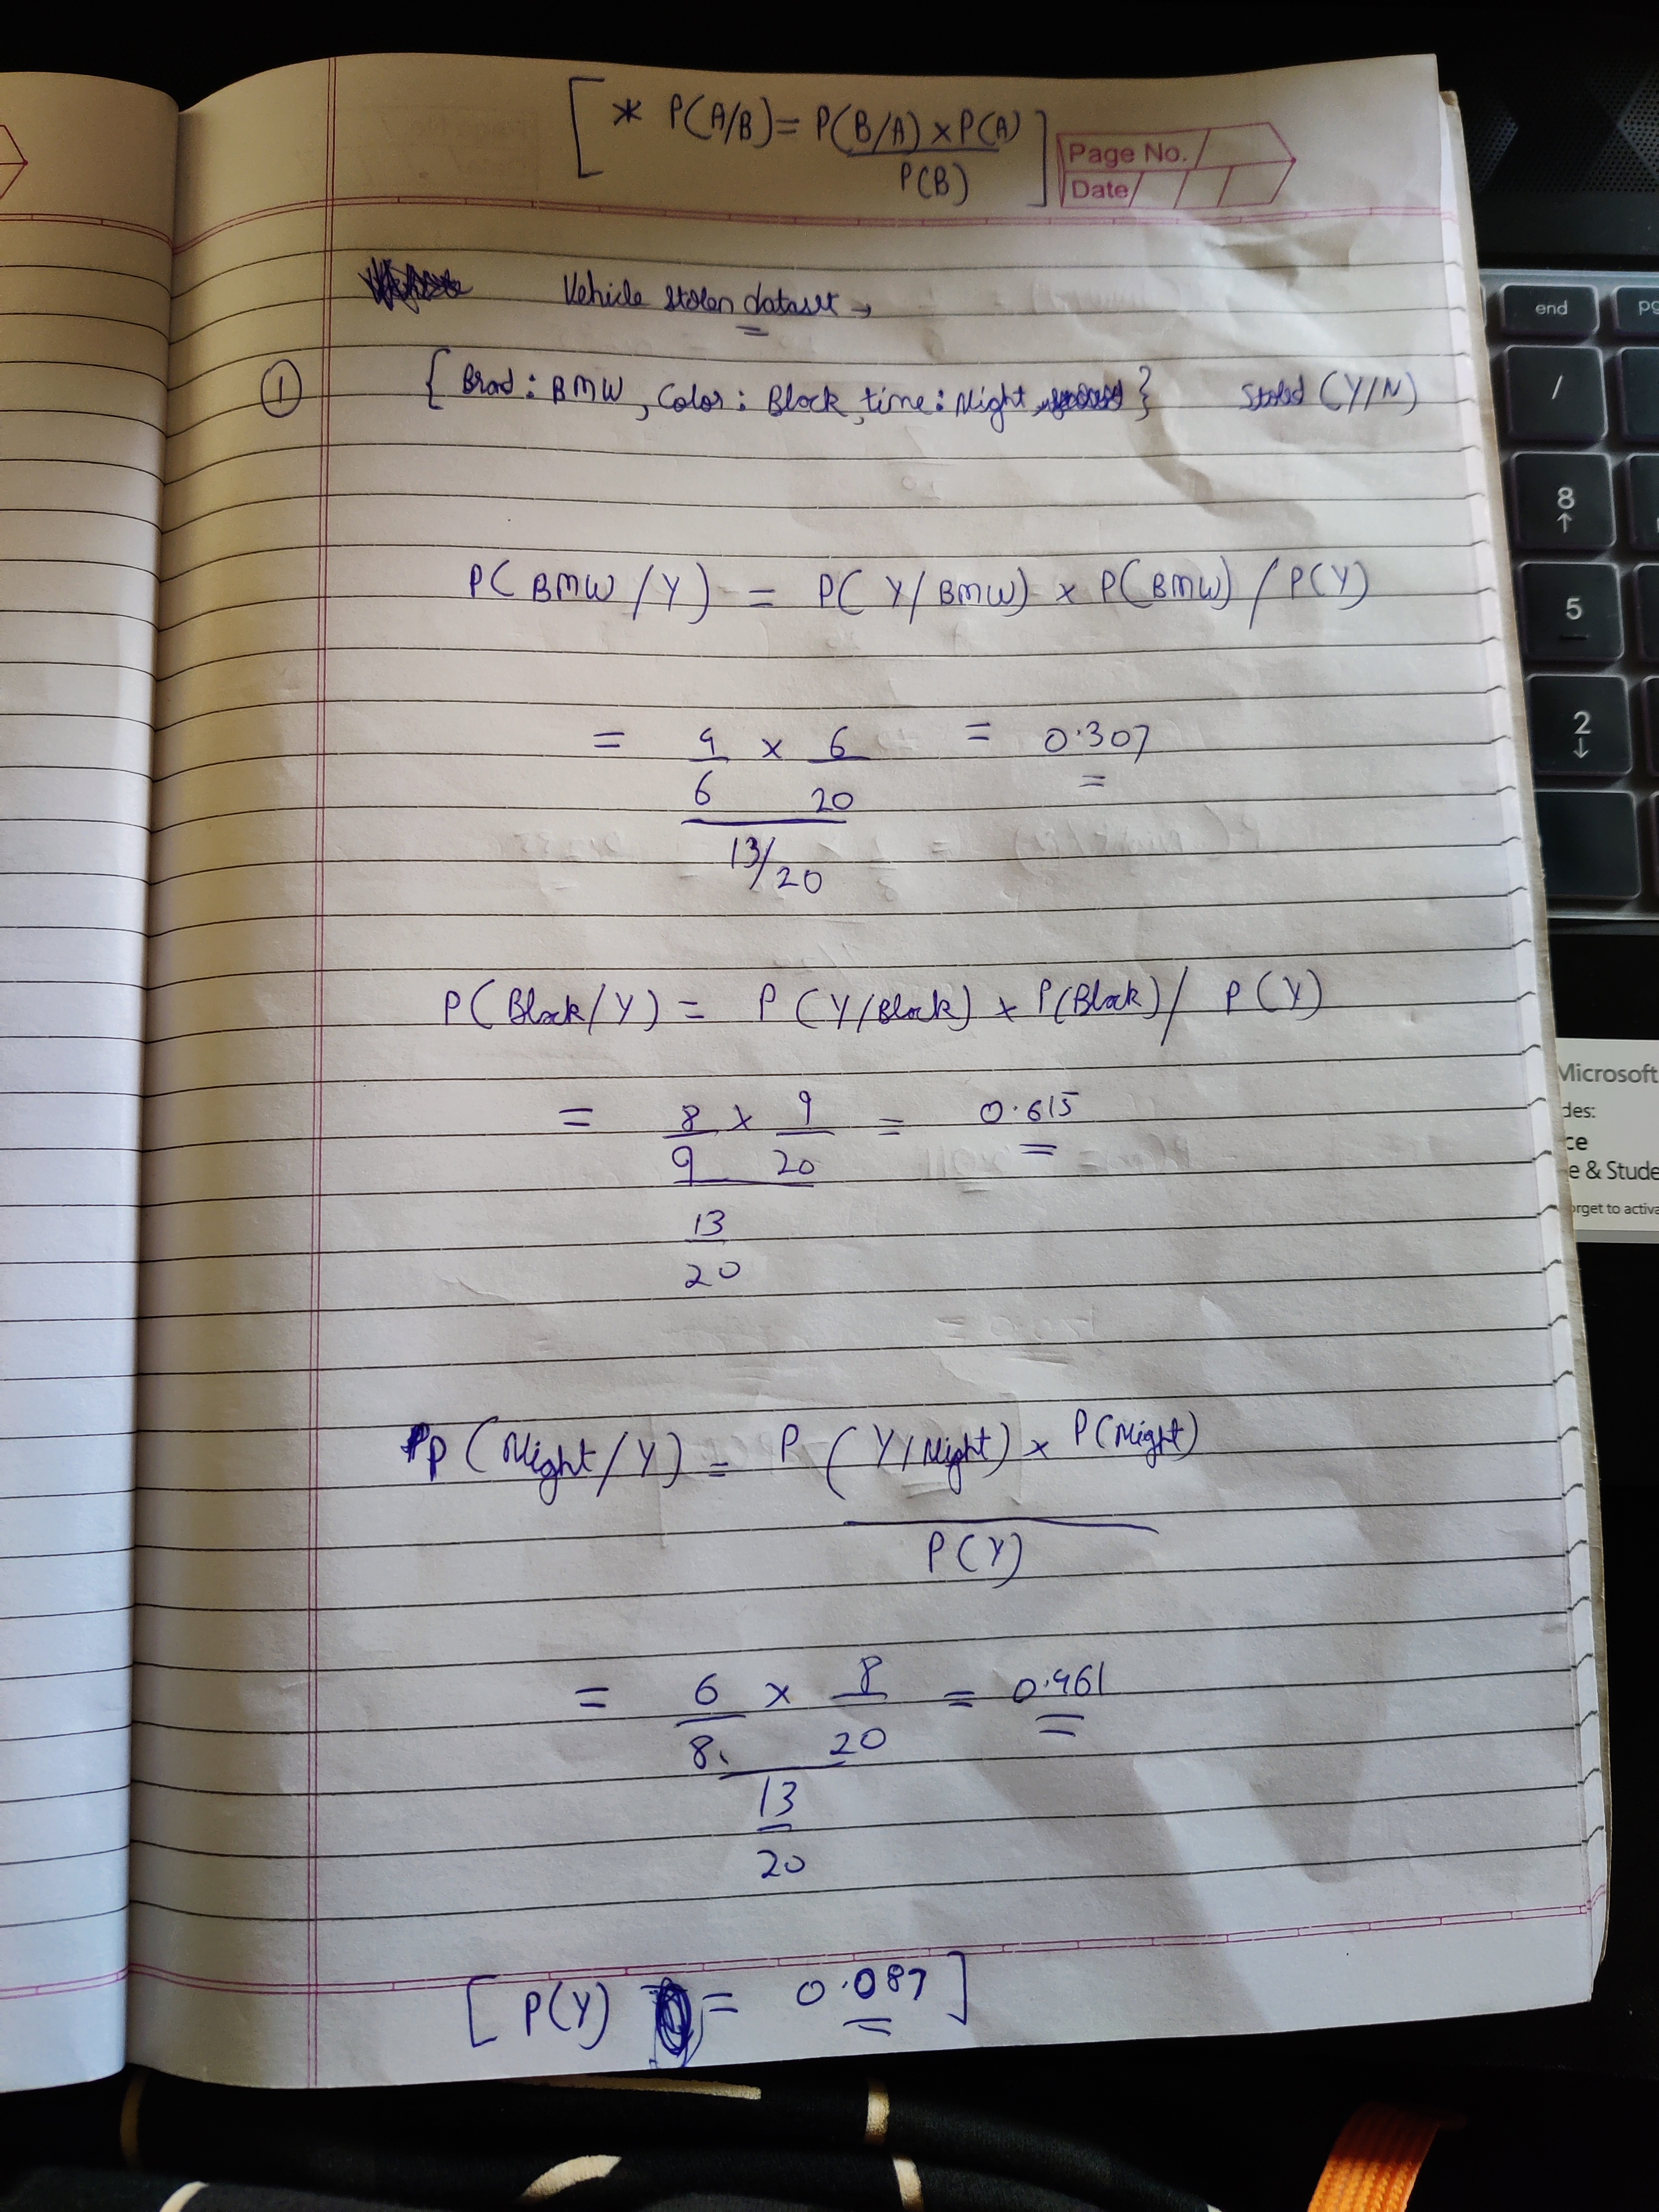 [ * P(A/B) = P(B/A) × P(A)
P(B) ]
Page No.
Date
Vehicle stolen dataset →
① { Brad : BMW, Color : Black, time : Night } Stoled (Y/N)
P( BMW / Y ) = P( Y / BMW ) × P( BMW ) / P(Y)
= 4 × 6 = 0.307
6 20
13/20
P( Black / Y ) = P ( Y / Black ) × P( Black ) / P (Y)
= 8 × 9 = 0.615
9 20
13
20
P ( Night / Y ) = P ( Y / Night ) × P (Night)
P (Y)
= 6 × 8 = 0.461
8 20
13
20
[ P(Y) = 0.087 ]
end
pg
/
8
↑
5
2
↓
Microsoft
des:
ce
e & Stude
orget to activa